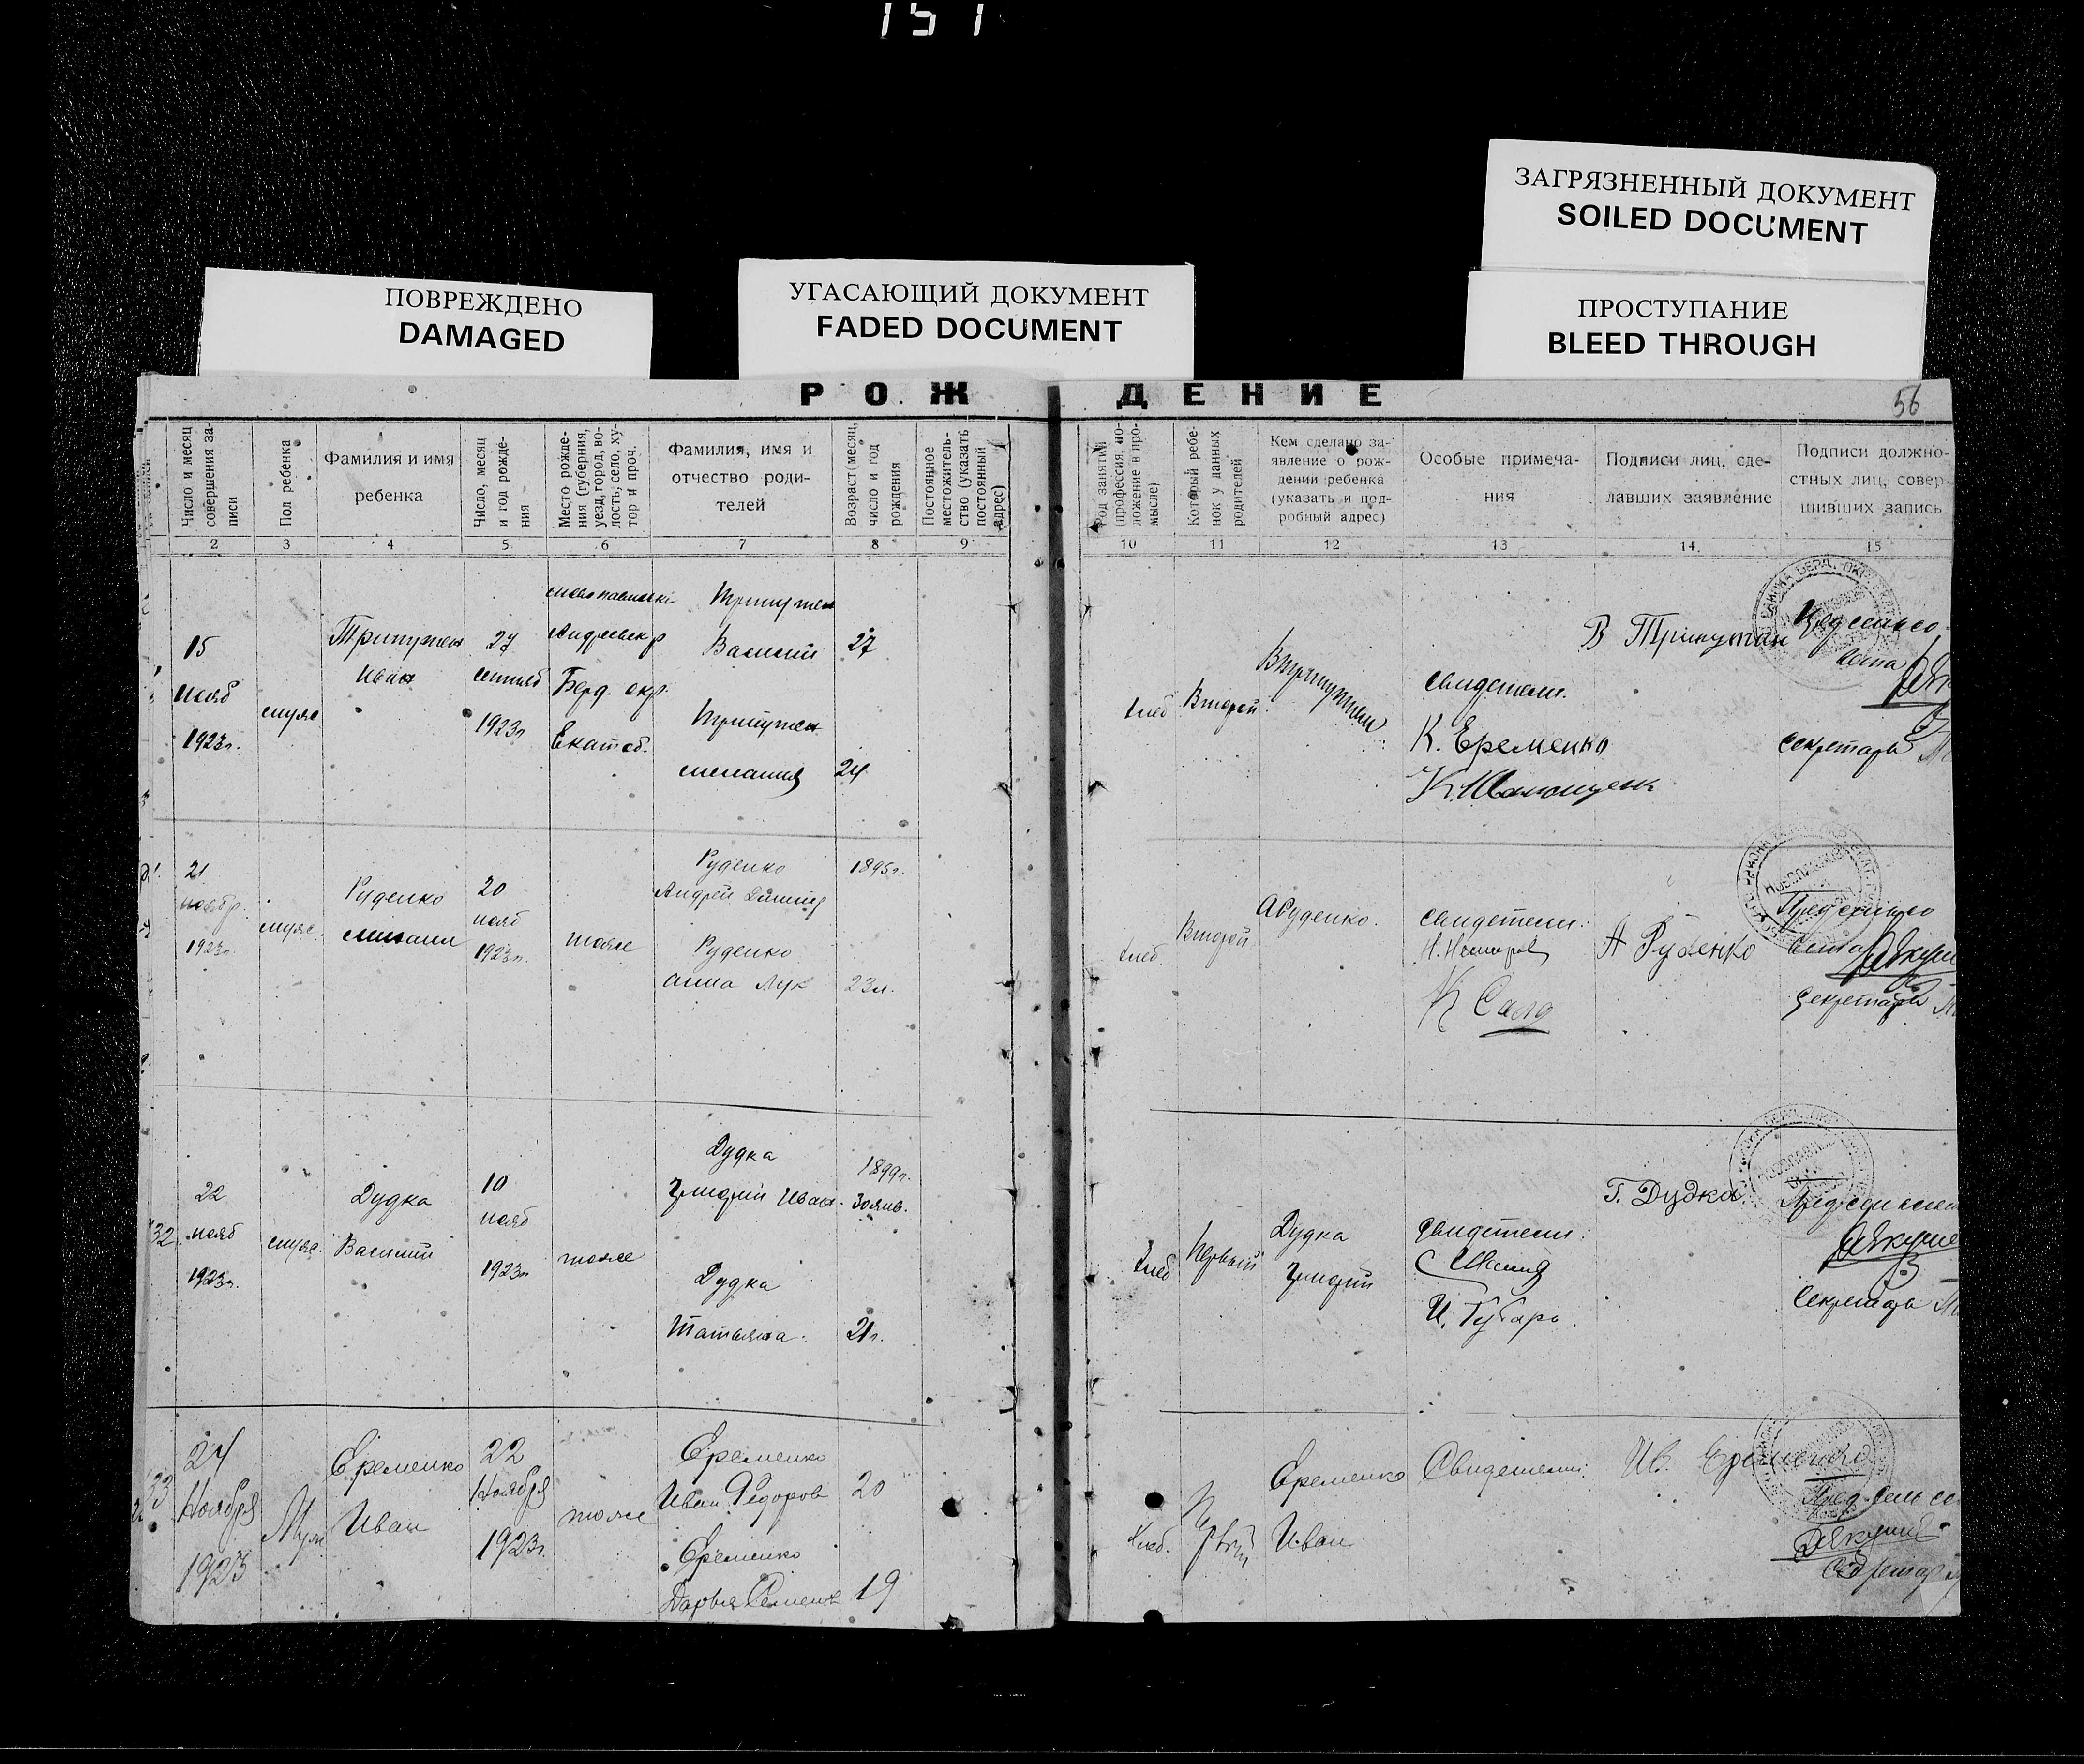 151
ЗАГРЯЗНЕННЫЙ ДОКУМЕНТ
SOILED DOCUMENT
ПОВРЕЖДЕНО
DAMAGED
УГАСАЮЩИЙ ДОКУМЕНТ
FADED DOCUMENT
ПРОСТУПАНИЕ
BLEED THROUGH
РОЖДЕНИЕ
56
Число и месяц
совершения за-
писи
Пол ребенка
Фамилия и имя
ребенка
Число, месяц
и год рожде-
ния
Место рожде-
ния (губерния,
уезд, город, во-
лость, село, ху-
тор и проч.
Фамилия, имя и
отчество роди-
телей
Возраст (месяц,
число и год
рождения
Постоянное
местожитель-
ство (указать
постоянный
адрес)
Род занятий
(профессия, по-
ложение в про-
мысле)
Который ребе-
нок у данных
родителей
Кем сделано за-
явление о рож-
дении ребенка
(указать и под-
робный адрес)
Особые примеча-
ния
Подписи лиц, сде-
лавших заявление
Подписи должно-
стных лиц, совер-
шивших запись
2 3 4 5 6 7 8 9 10 11 12 13 14 15
15
нояб
1923г.
муж
Трипутен
Иван
27
сентяб
1923г
Андреевск р
Берд. окр.
Екатоб.
Трипутен
Василий
27
Трипутен
24
хлеб
Второй
свидетели.
К. Еременко
В Трипутан
секретарь
21
ноябр.
1923г.
муж.
Руденко
Михаил
20
нояб
1923г.
тоже
Руденко
Андрей
1895г.
Руденко
анна Лук
23л.
хлеб.
Второй
А Руденко.
свидетели:
А Руденко
Секретарь
32.
22
нояб
1923г.
муж.
Дудка
Василий
10
нояб
1923г
тоже
Дудка
Григорий Иван.
1899г.
30 янв.
Дудка
Татьяна.
21г.
хлеб
Первый
Дудка
Григорий
свидетели:
Г. Дудка
Секретарь
33
24
Ноября
1923
Муж
Еременко
Иван
22
Ноября
1923г.
тоже
Еременко
Иван Федоров
20
Еременко
Дарья Семен
19
хлеб.
Первый
Еременко
Иван
Свидетели:
Ив. Еременко
Пред. сель со